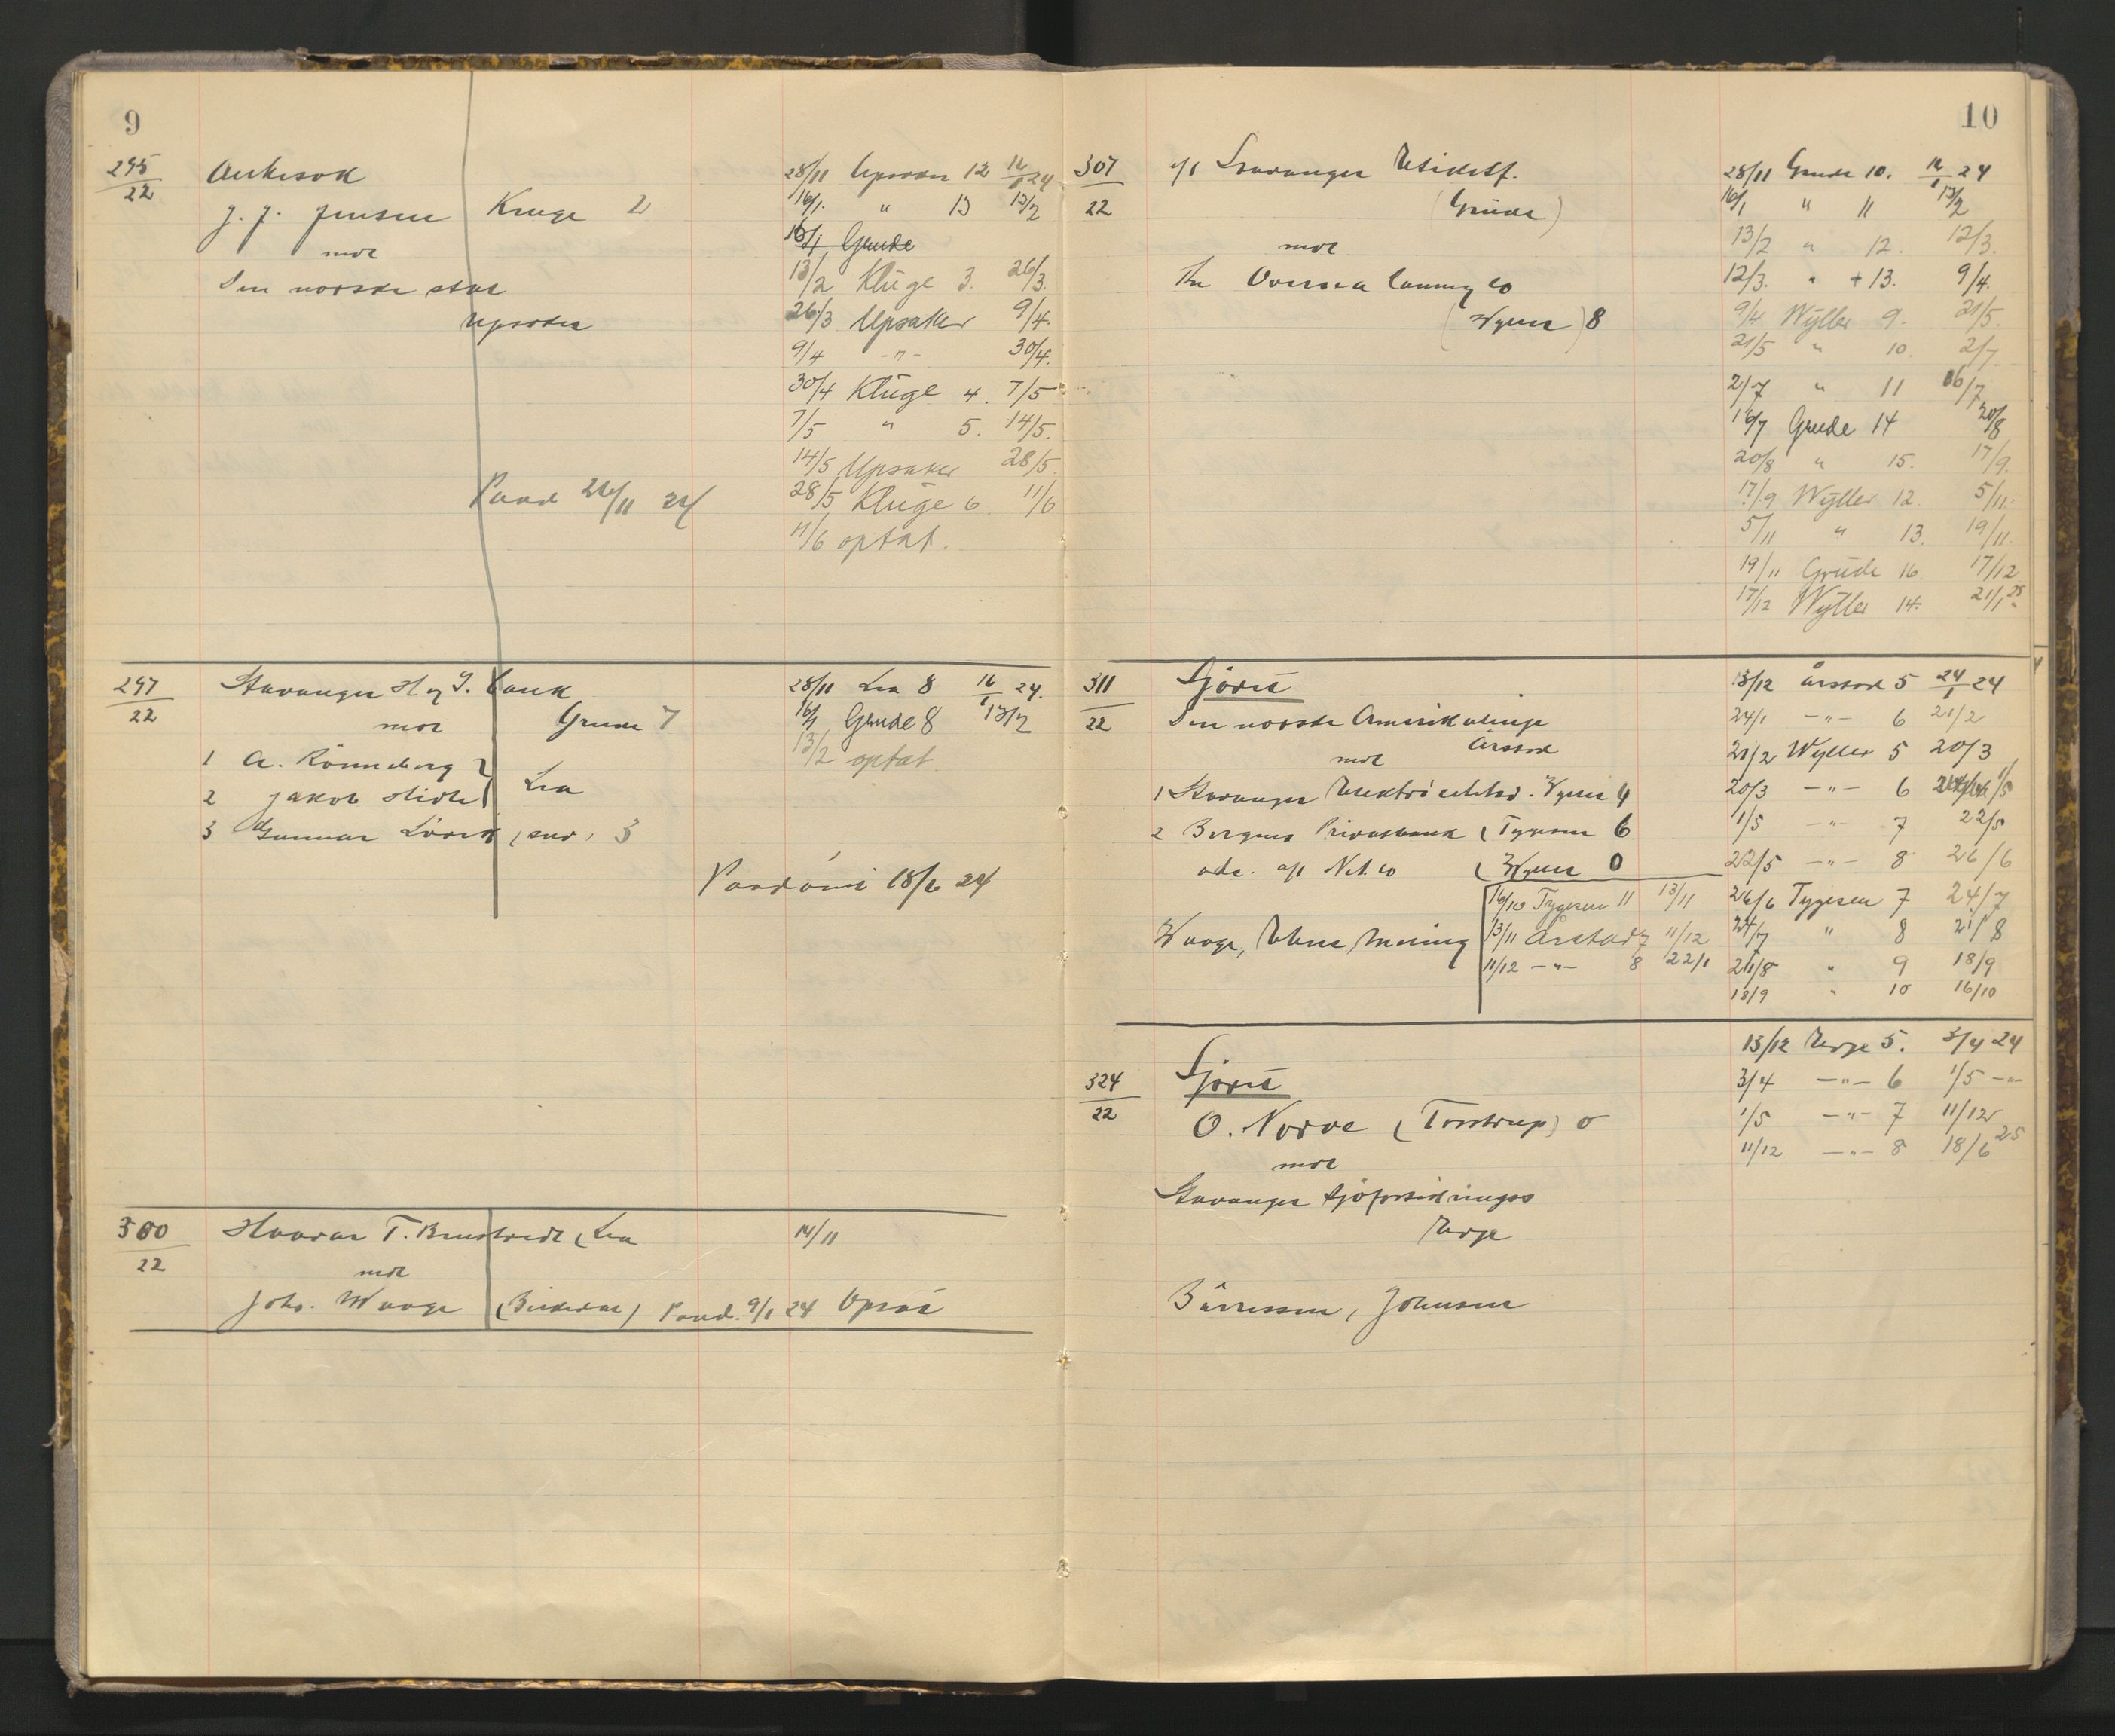 9
295/22
J. J. Jensen Kluge 2
mot
Den norske stat
Upsaker
Paad 26/11 24
28/11 Upsaker 12 16/1 24
16/1 " 13 13/2
16/1 Grude
13/2 Kluge 3. 26/3.
26/3 Upsaker 9/4.
9/4 -"- 30/4.
30/4 Kluge 4. 7/5
7/5 " 5. 14/5.
14/5 Upsaker 28/5.
28/5 Kluge 6. 11/6
11/6 optat.
297/22
Stavanger H og I. bank
mot Grude 7
1 A. Rönneberg
2 Jakob Lea
3 Gunnar 3
18/2 24
28/11 Lea 8 16/1 24.
16/1 Grude 8 13/2
13/2 optat.
300/22
T. Lea
mot
Johs. Waage Paad. 9/1 24
14/11
10
307/22
a/s Stavanger
(Grude)
mot
The Oversea Co
(Wyller) 8
28/11 Grude 10. 16/1 24
16/1 " 11 13/2
13/2 " 12. 12/3.
12/3. " + 13. 9/4.
9/4 Wyller 9. 21/5.
21/5 " 10. 2/7.
2/7 " 11 16/7
16/7 Grude 14 20/8
20/8 " 15. 17/9.
17/9 Wyller 12. 5/11.
5/11 " 13. 19/11.
19/11 Grude 16. 17/12
17/12 Wyller 14. 21/1 25
311/22
Sjørét
Den norske Amerikalinje
Årstad
mot
1 Stavanger Wyller 4
2 Bergens Privatbank (Tygesen 6
(Wyller 0
16/10 Tygesen 11 13/11
13/11 Årstad 7 11/12
11/12 -"- 8 22/1
13/12 Årstad 5 24/1 24
24/1 -"- 6 21/2
21/2 Wyller 5 20/3
20/3 -"- 6 1/5
1/5 -"- 7 22/5
22/5 -"- 8 26/6
26/6 Tygesen 7 24/7
24/7 " 8 21/8
21/8 " 9 18/9
18/9 " 10 16/10
324/22
Sjørét
O. Norve (Torstrup) 0
mot
Stavanger Sjøforsikringss
13/12 5. 3/4 24
3/4 -"- 6 1/5 -"-
1/5 -"- 7 11/12
11/12 -"- 8 18/6 25
Johnsen